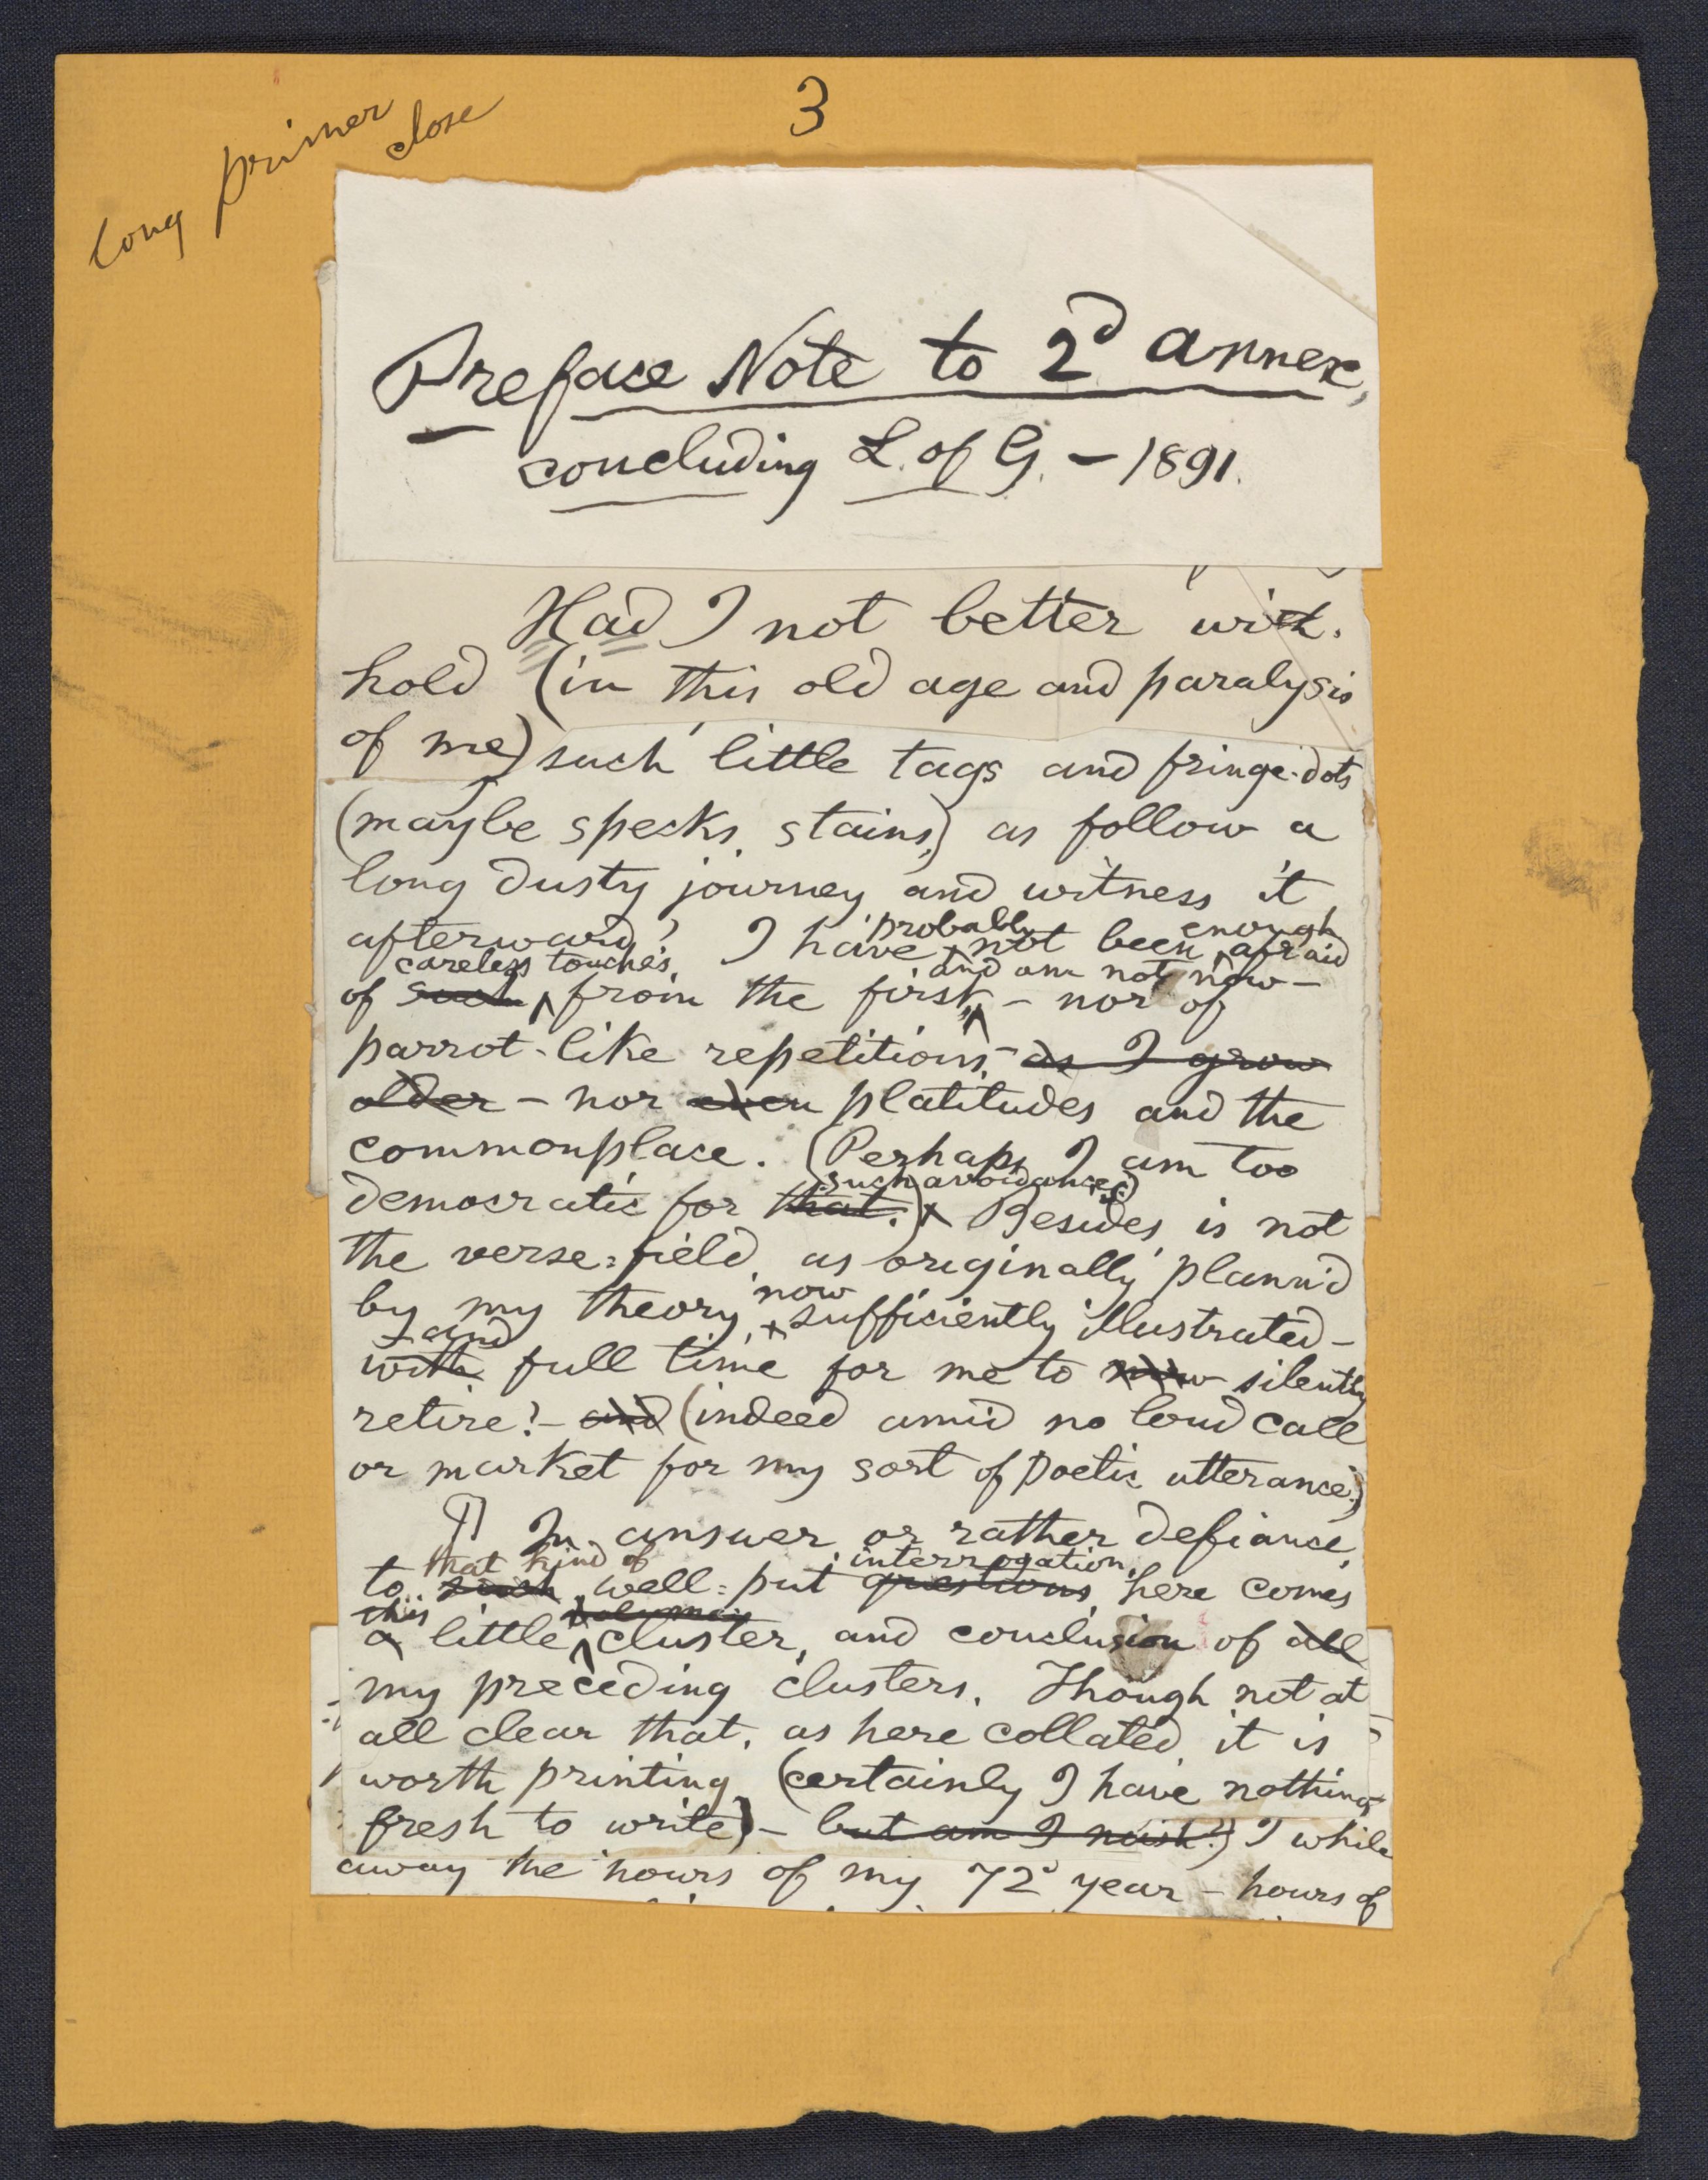 long primer
close
3
Preface Note to 2d annex,
concluding L. of G. – 1891.
Had I not better with-
hold (in this old age and paralysis
of me) such little tags and fringe-dots
(maybe specks, stains,) as follow a
long dusty journey and witness it
probably enough
afterward? I have not been afraid
careless touches, and am not now –
of such from the first, – nor of
parrot-like repetitions, – as I grow
older – nor even platitudes and the
commonplace. (Perhaps I am too
such avoidances.)
democratic for that.) Besides, is not
the verse-field, as originally plann'd
now
by my theory, sufficiently illustrated –
and
with full time for me to now silently
retire? – and (indeed amid no loud call
or market for my sort of poetic utterance.)
¶ In answer, or rather defiance,
that kind of interrogation,
to such well-put questions, here comes
this
a little cluster, and conclusion of all
my preceding clusters. Though not at
all clear that, as here collated, it is
worth printing (certainly I have nothing
fresh to write) – but am I I while
away the hours of my 72d year – hours of